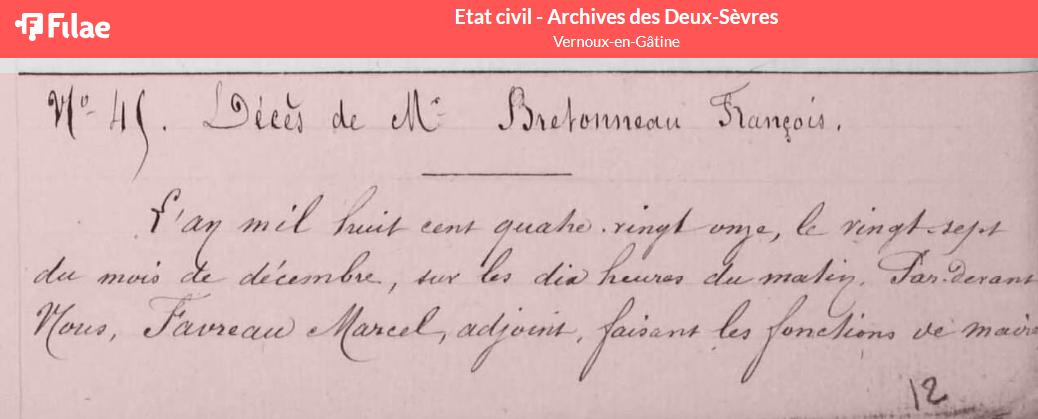 Filae
Etat civil - Archives des Deux-Sèvres
Vernoux-en-Gâtine
N° 45. Décès de Mr Bretonneau François.
L'an mil huit cent quatre-vingt onze, le vingt-sept
du mois de décembre, sur les dix heures du matin. Par-devant
Nous, Favreau Marcel, adjoint, faisant les fonctions de maire
12